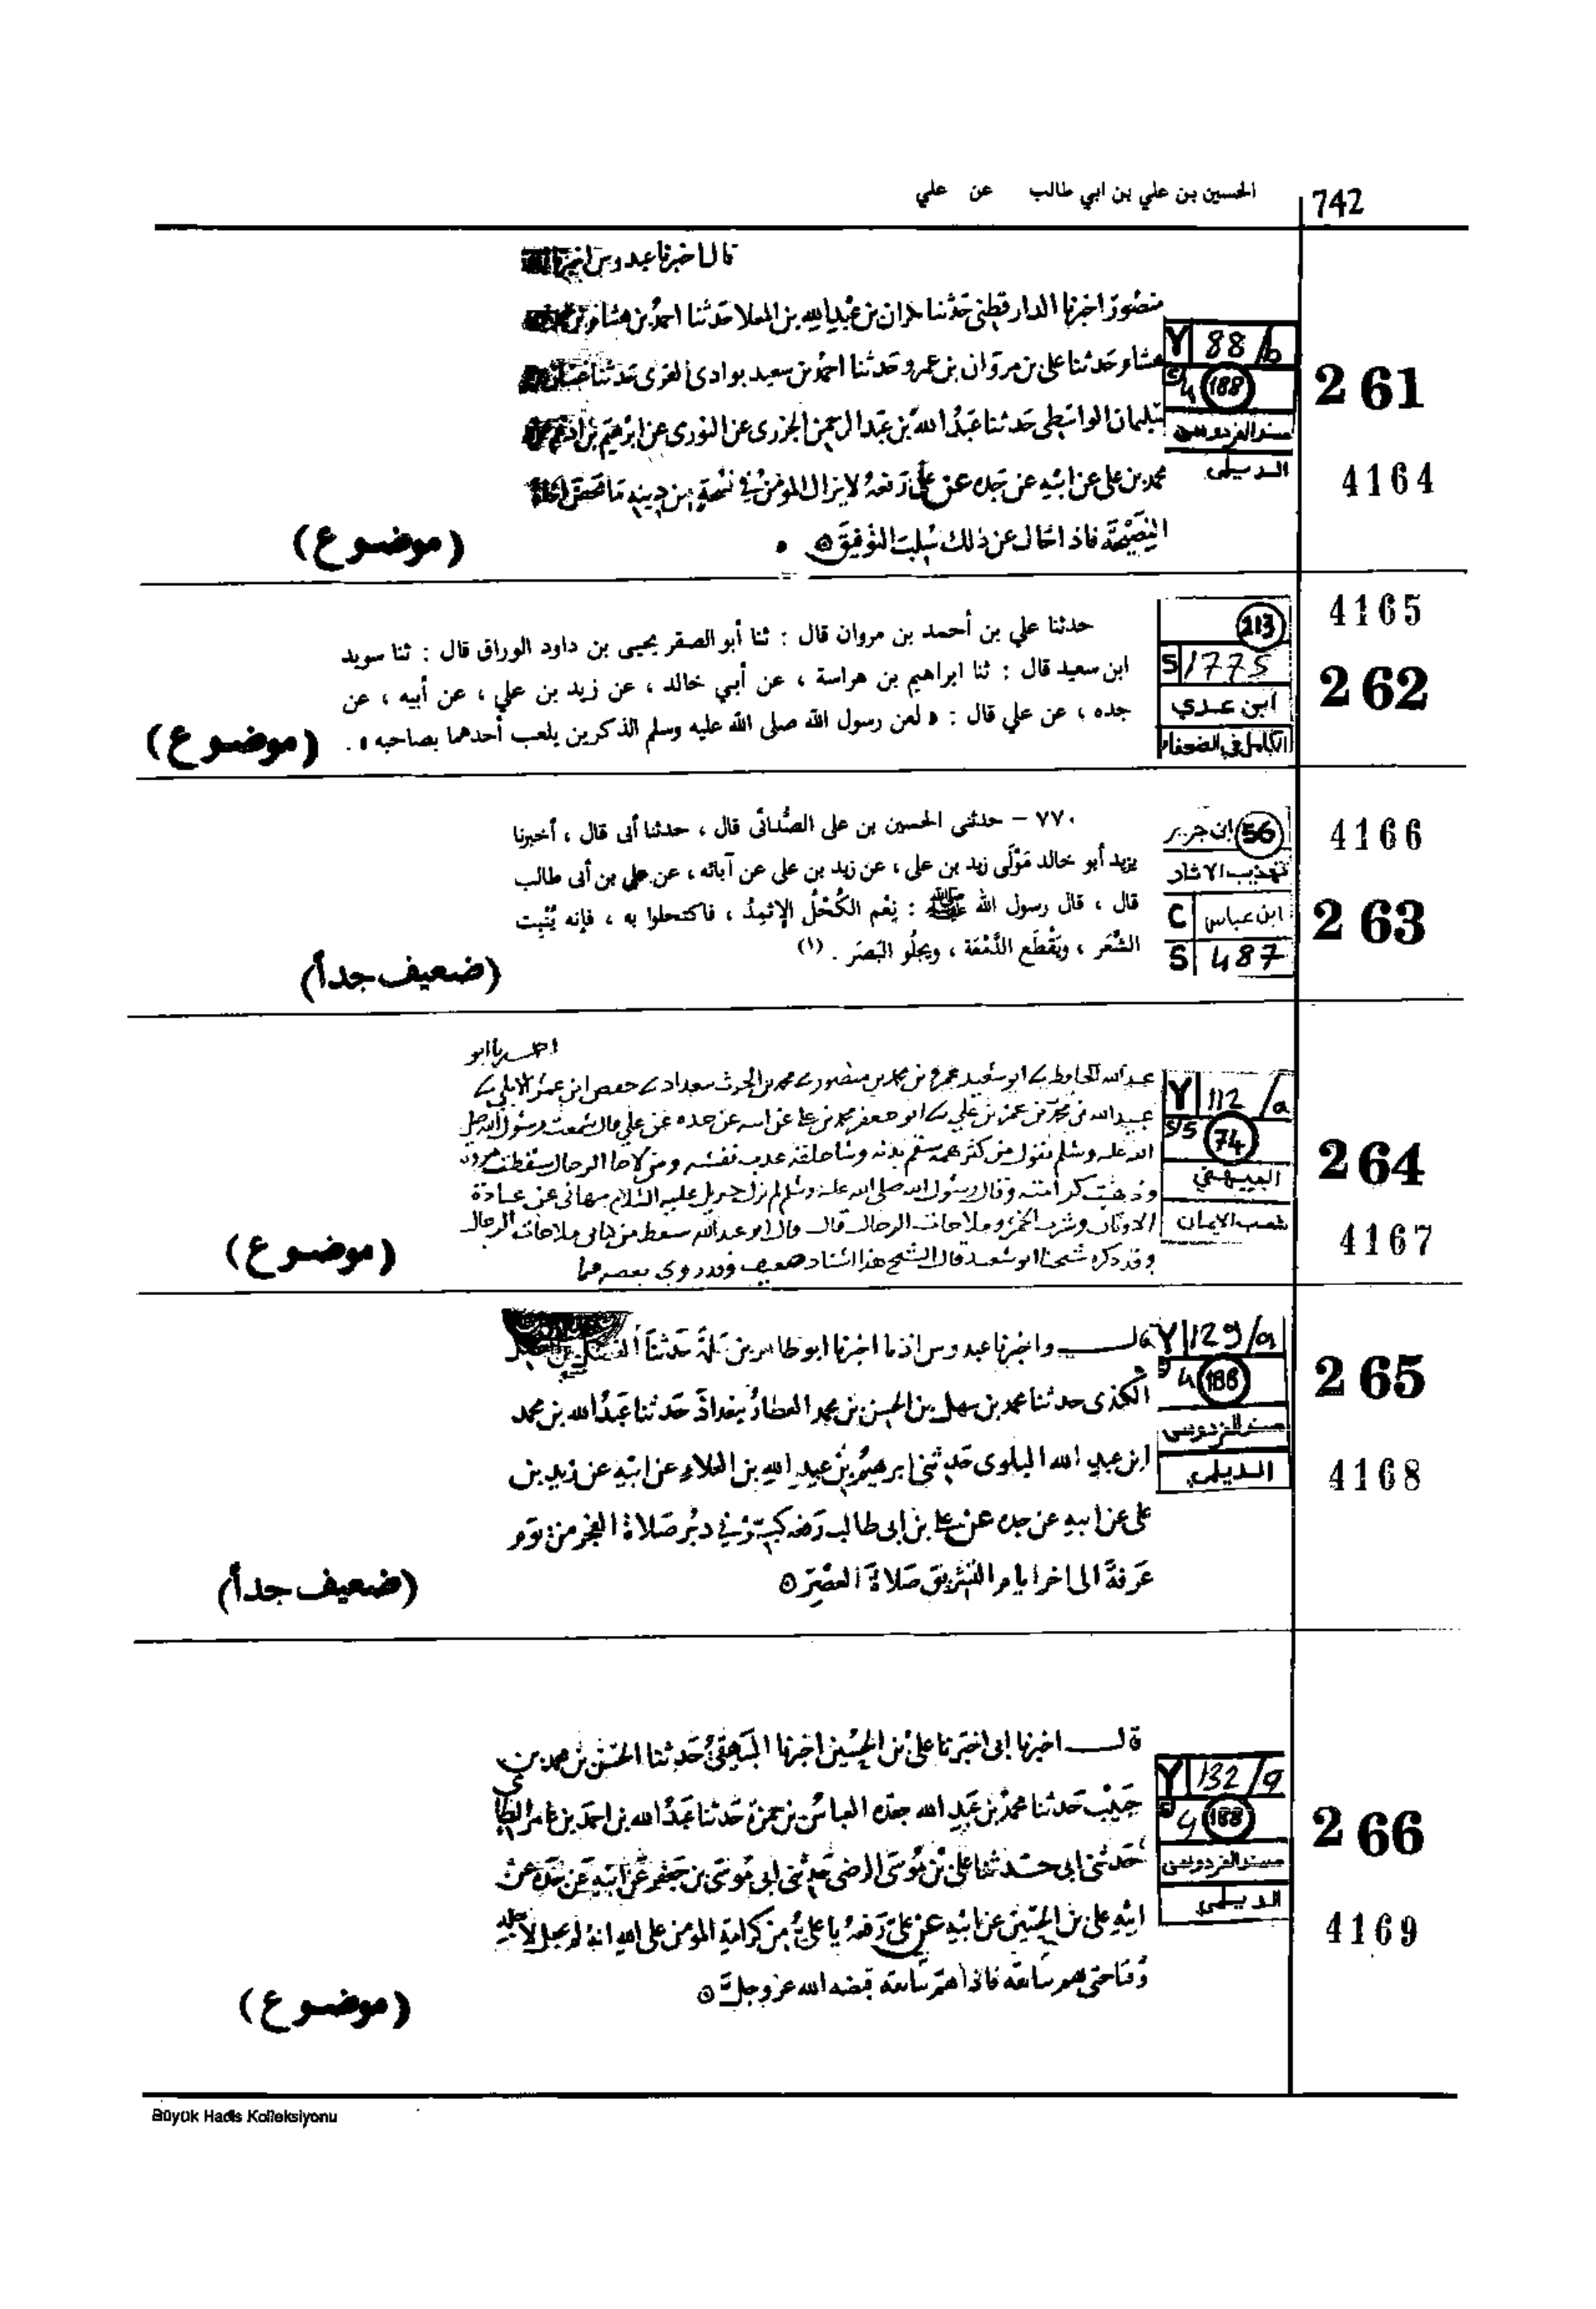 الحسين بن علي بن ابي طالب عن علي
742
قال اخبرنا عبدوس اخبرنا
منصور اخبرنا الدارقطنى حدثنا بن عبدالله بن المعلا حدثنا احمد بن
حدثنا على بن مروان بن عمرو حدثنا احمد بن سعيد بوادى القرى حدثنا
سليمان الواسطى حدثنا عبد الله بن عبد الرحمن الجزرى عن الثورى عن ابرهيم بن ادهم
محمد بن على عن ابيه عن جده عن على رفعه لا يزال المومن في فسحة من دينه ما
النصيحة فاذا حال عن ذلك سلبت التوفيق
Y 88/b
S/4 188
مسند الفردوس
الديلمي
261
4164
(موضوع)
4165
حدثنا علي بن أحمد بن مروان قال : ثنا أبو الصقر يحيى بن داود الوراق قال : ثنا سويد
ابن سعيد قال : ثنا ابراهيم بن هراسة ، عن أبي خالد ، عن زيد بن علي ، عن أبيه ، عن
جده ، عن علي قال : « لعن رسول الله صلى الله عليه وسلم الذكرين يلعب أحدهما بصاحبه » .
213
S 1775
ابن عدي
الكامل في الضعفاء
262
(موضوع)
٧٧٠ – حدثني الحسين بن على الصُّدائى قال ، حدثنا أبى قال ، أخبرنا
يزيد أبو خالد مَوْلَى زيد بن على ، عن زيد بن على عن آبائه ، عن على بن أبى طالب
قال ، قال رسول الله ﷺ : نِعْم الكُحْلُ الإثمِدُ ، فاكتحلوا به ، فإنه يُنْبِت
الشَّعَر ، ويَقْطَع الدَّمْعَة ، ويجلُو البَصَر . (١)
56 ابن جرير
تهذيب الاثار
C ابن عباس
S 487
4166
263
(ضعيف جداً)
عبد الله الحافظ ابو سعيد عمرو بن محمد بن منصور محمد بن الحرث ببغداد حفص ابن عمر الابلي
عبيد الله بن محمد بن عمر بن علي ابو جعفر محمد بن علي عن ابيه عن جده عن علي قال سمعت رسول الله صلى
الله عليه وسلم يقول من كثر همه سقم بدنه وساء خلقه عذب نفسه ومن لاحا الرجال سقطت مروته
وذهبت كرامته وقال رسول الله صلى الله عليه وسلم لم يزل جبريل عليه السلام ينهاني عن عبادة
الاوثان وشرب الخمر وملاحات الرجال قال قال ابو عبد الله سقط من كتابي ملاحات الرجال
وقد ذكره شيخنا ابو سعيد قال الشيخ هذا اسناد ضعيف وقد روي
Y 112/a
S/5 74
البيهقي
شعب الايمان
264
4167
(موضوع)
قال واخبرنا عبدوس اذنا اخبرنا ابو طاهر بن سلمة حدثنا
حدثنا محمد بن سهل بن الحسن بن محمد العطار ببغداد حدثنا عبد الله بن محمد
ابن عبد الله البلوى حدثنى ابرهيم بن عبد الله بن العلاء عن ابيه عن زيد بن
على عن ابيه عن جده عن على بن ابى طالب رفعه كبر في دبر صلاة الفجر من يوم
عرفة الى اخر ايام التشريق صلاة العصر
Y 129/a
4 186
مسند الفردوس
الديلمي
265
4168
(ضعيف جداً)
قال اخبرنا ابى اخبرنا على بن الحسين اخبرنا البيهقى حدثنا الحسن بن محمد بن
حبيب حدثنا محمد بن عبد الله حفده العباس بن حمزة حدثنا عبد الله بن احمد بن عامر الطايي
حدثنى ابى حدثنا على بن موسى الرضى حدثنى ابى موسى بن جعفر عن ابيه عن جده عن
ابيه على بن الحسين عن ابيه عن على رفعه يا على من كرامة المومن على الله انه لم يجعل لاجله
وقتا حتى يهم ببايقة فاذا هم ببايقة قبضه الله عز وجل
Y 132/a
188
مسند الفردوس
الديلمي
266
4169
(موضوع)
Büyük Hadis Kolleksiyonu